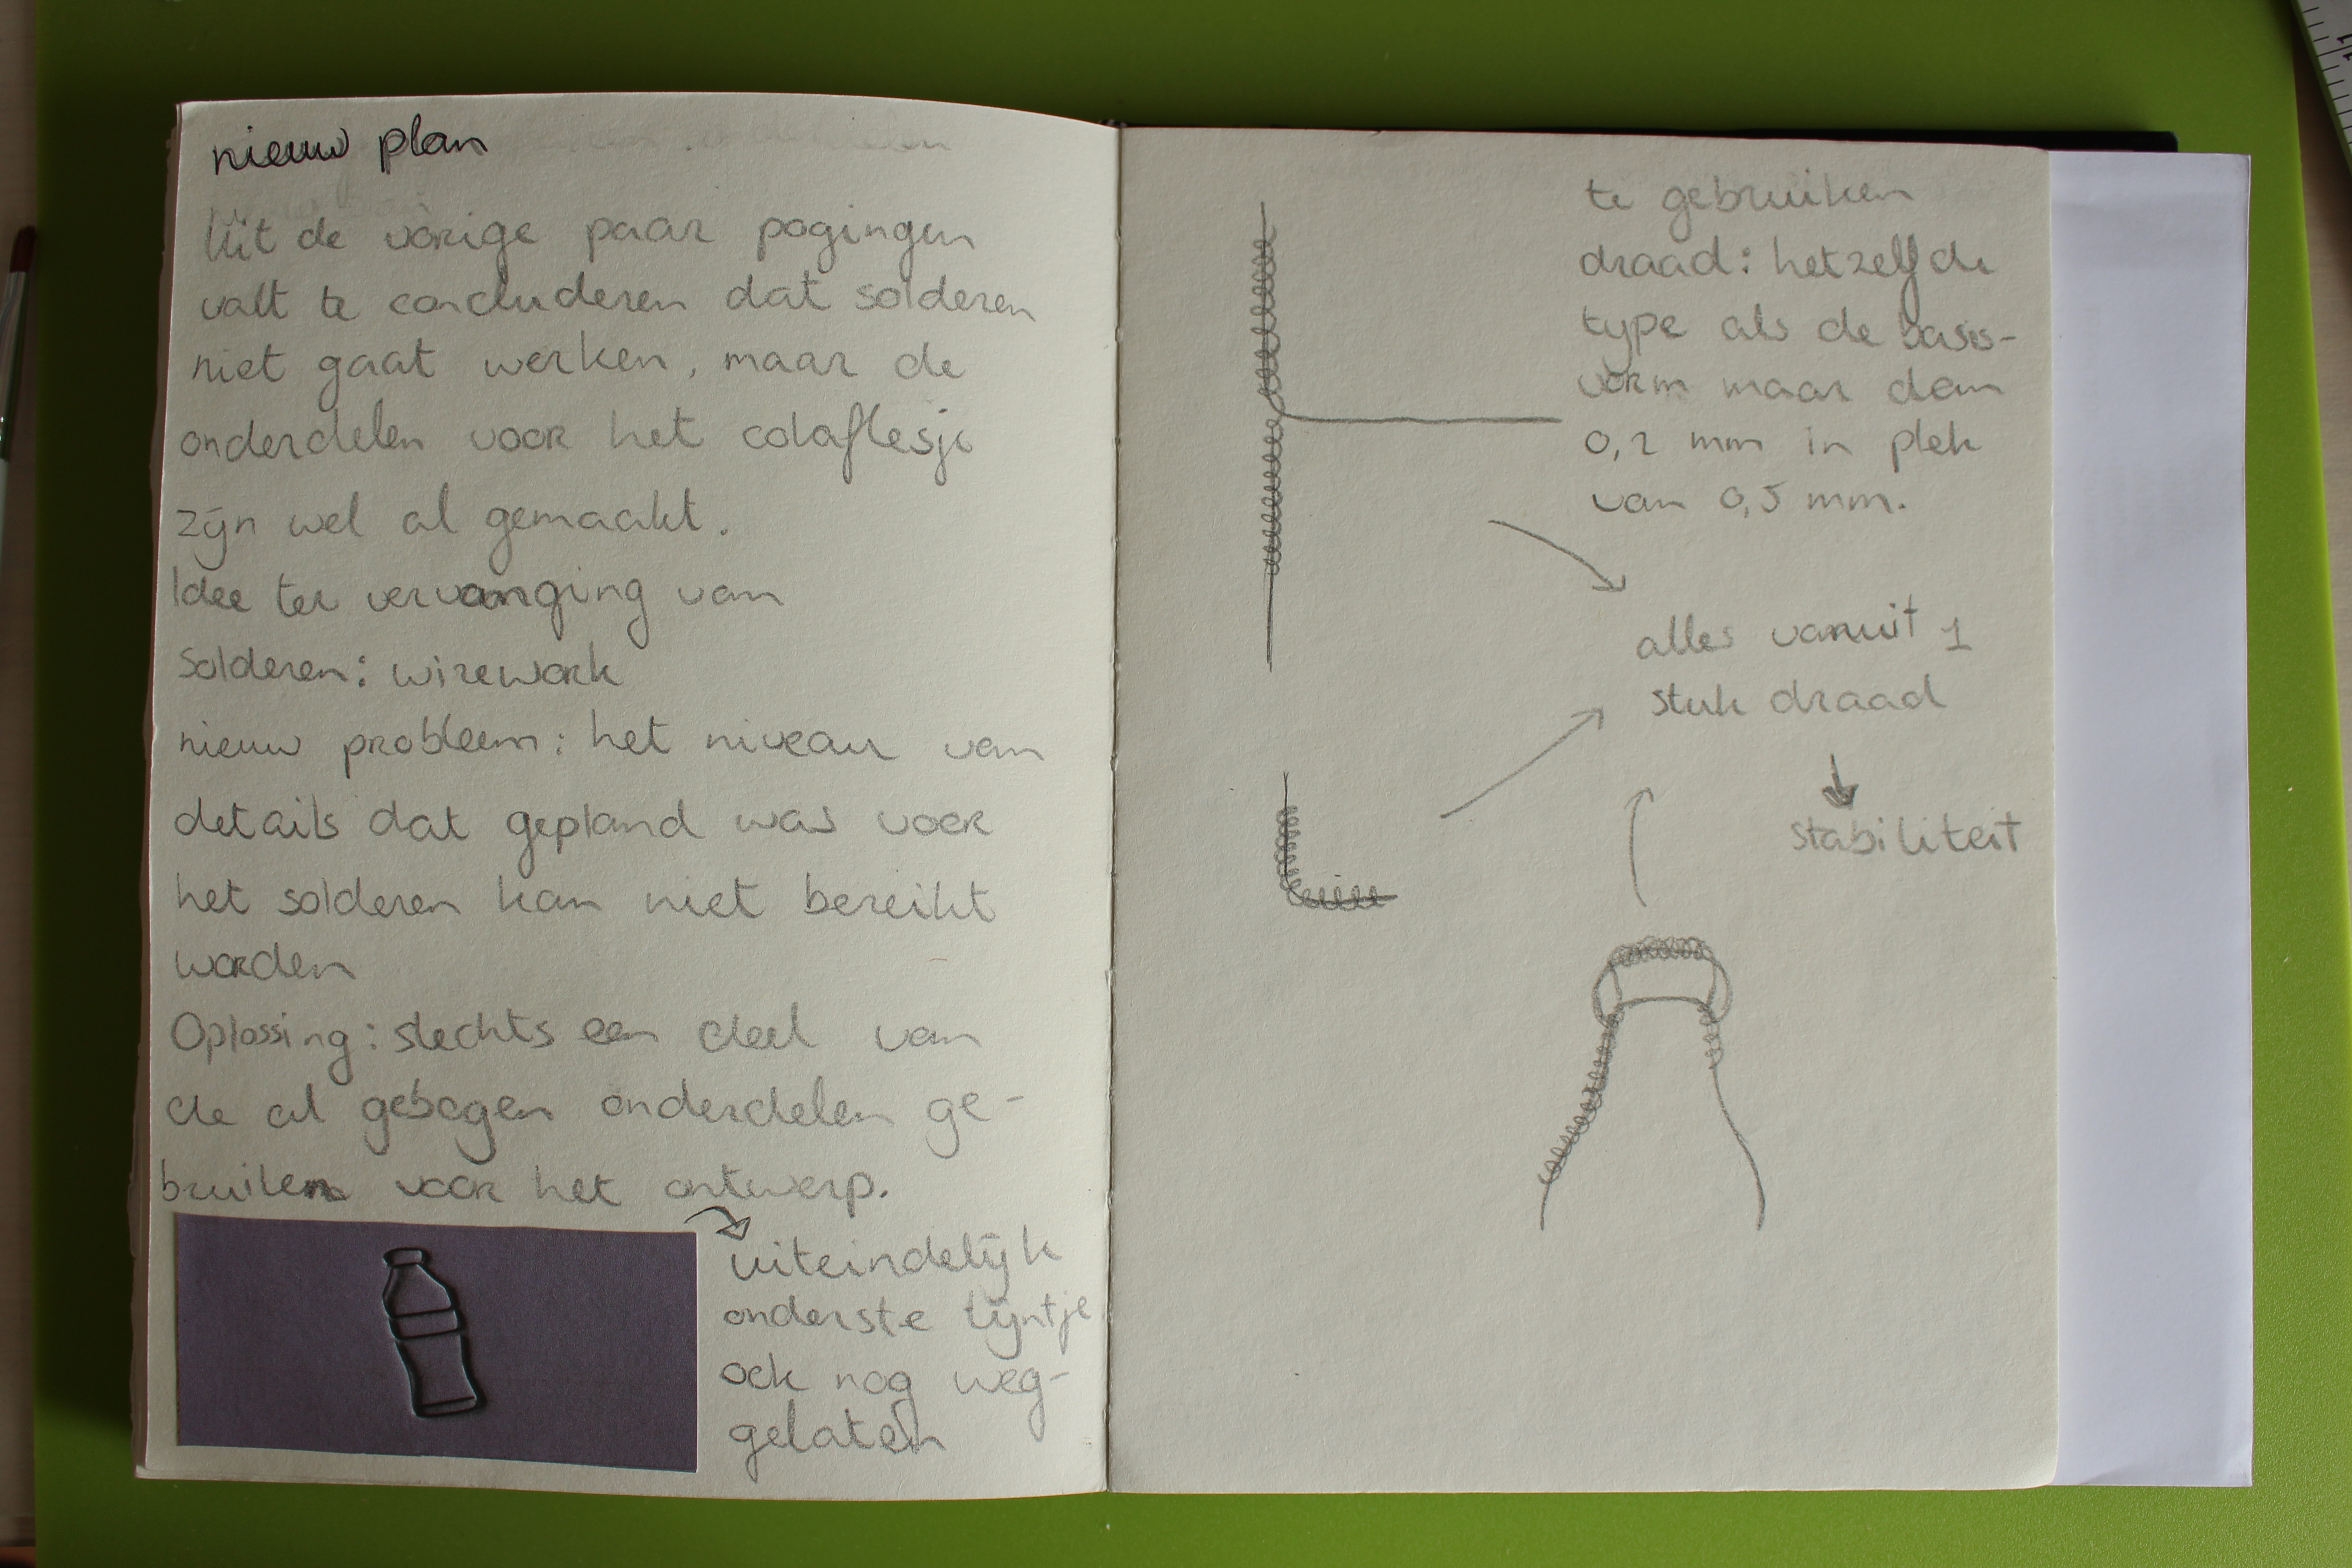 nieuw plan
Uit de vorige paar pogingen
valt te concluderen dat solderen
niet gaat werken, maar de
onderdelen voor het colaflesje
zijn wel al gemaakt.
Idee ter vervanging van
solderen: wirework
nieuw probleem: het niveau van
details dat gepland was voor
het solderen kan niet bereikt
worden
Oplossing: slechts een deel van
de al gebogen onderdelen ge-
bruiken voor het ontwerp.
uiteindelijk
onderste lijntje
ook nog weg-
gelaten
te gebruiken
draad: hetzelfde
type als de basis-
vorm maar dan
0,2 mm in plek
van 0,5 mm.
alles vanuit 1
stuk draad
stabiliteit